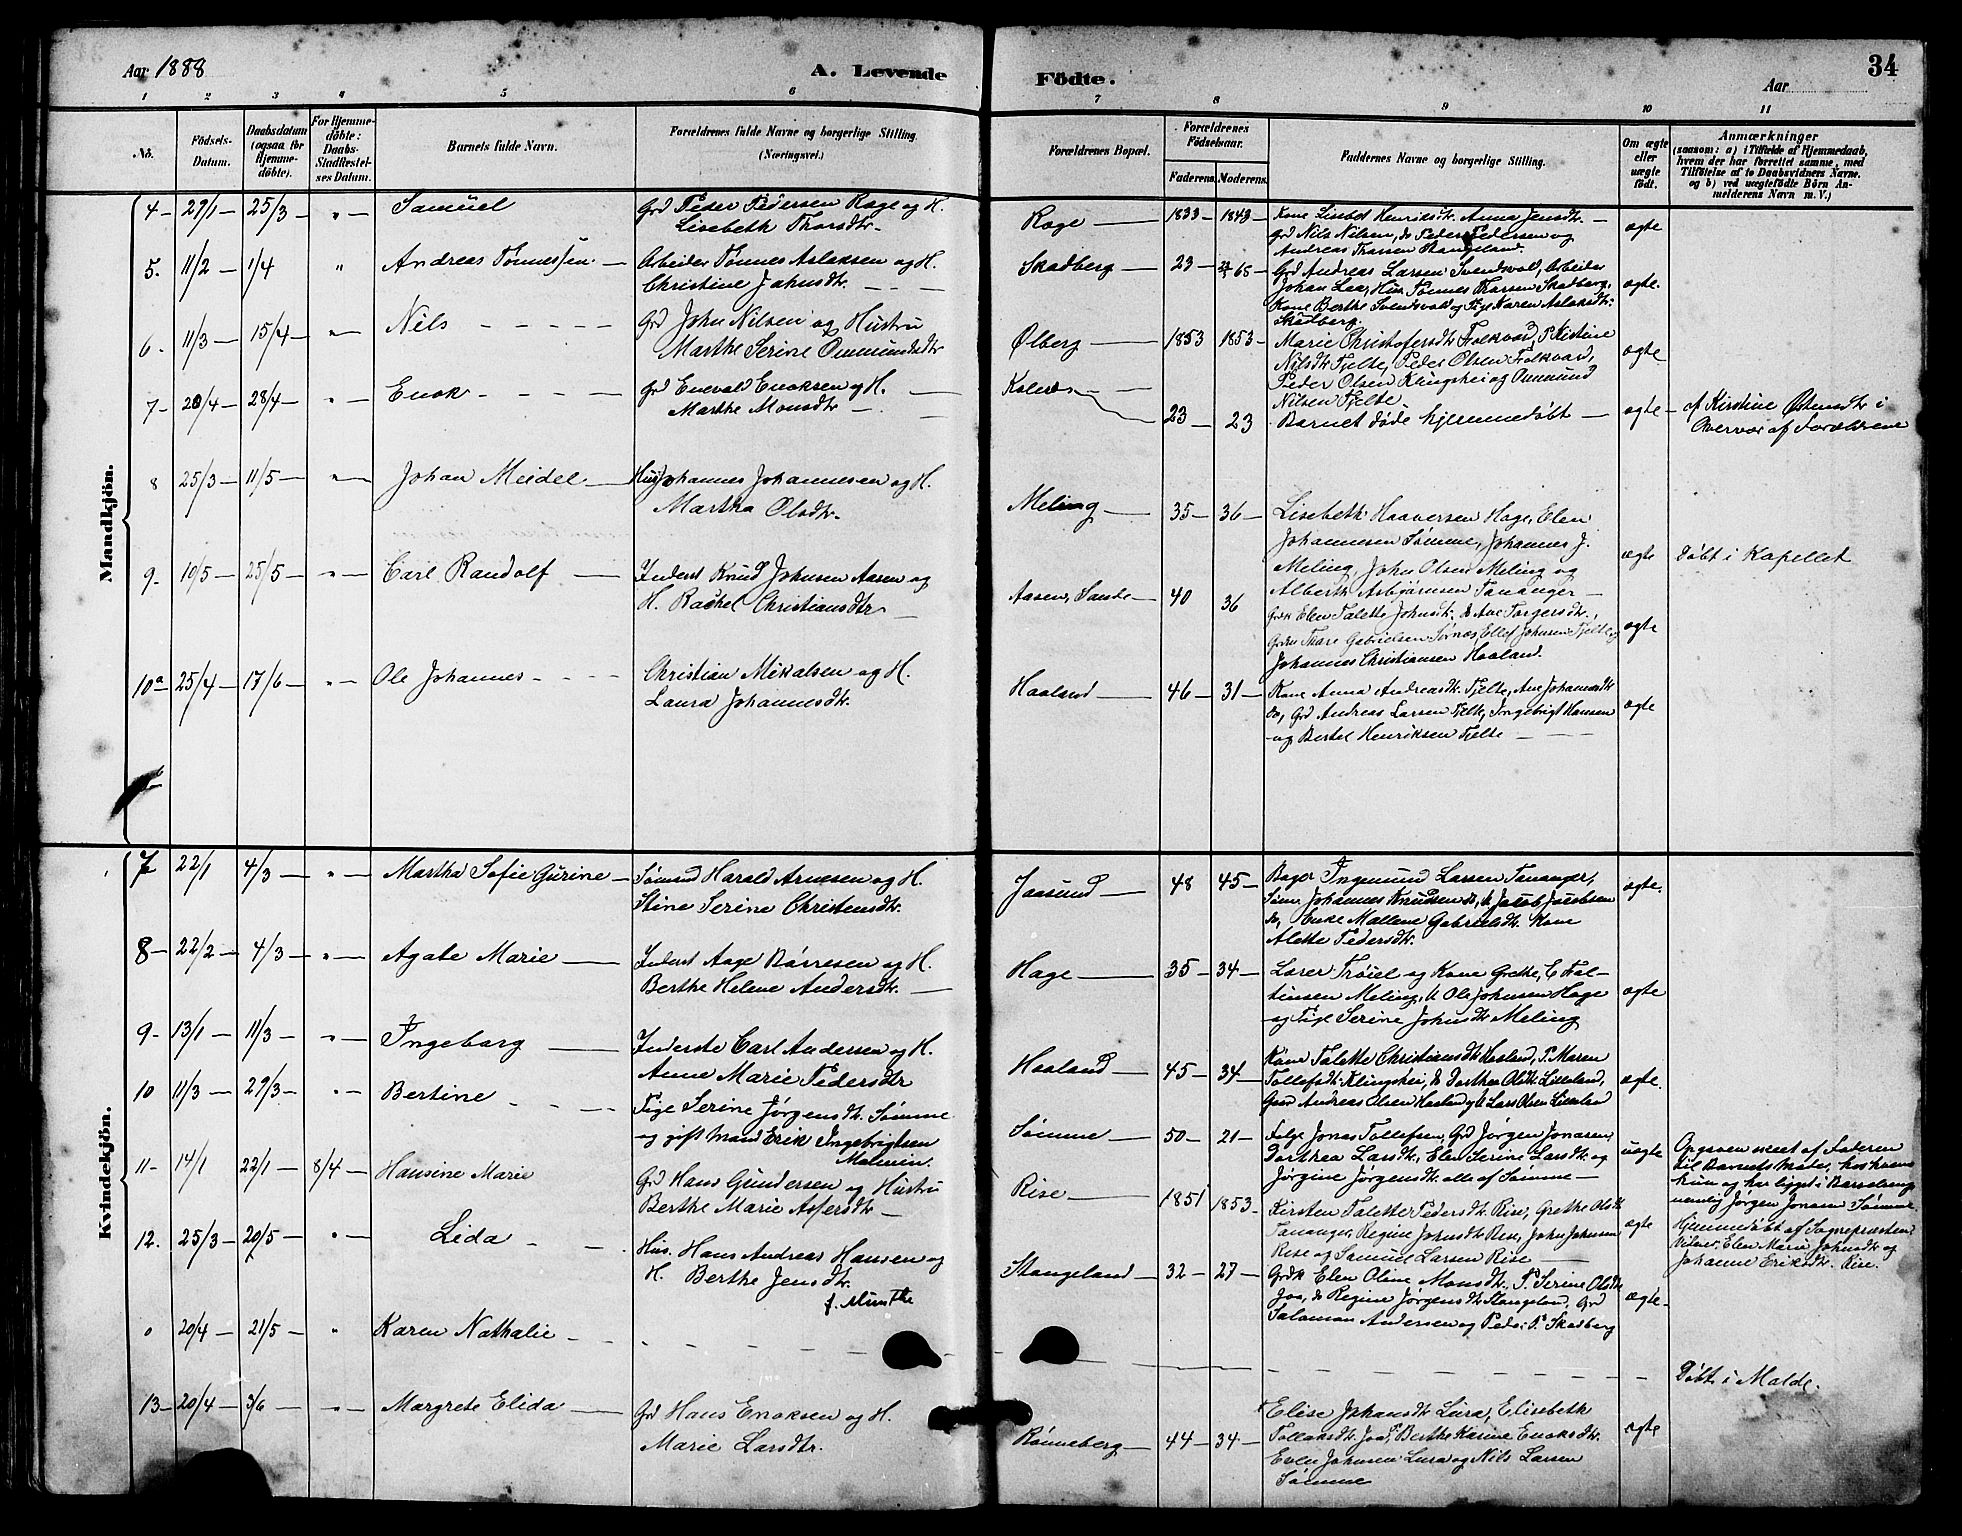 Aar 1888
A. Levende
Födte.
Aar
34
1 2 3 4 5 6 7 8 9 10 11
No.
Födsels-
Datum.
Daabsdatum
(ogsaa for
Hjemme-
döbte).
For Hjemme-
döbte:
Daabs-
Stadfæstel-
ses Datum.
Barnets fulde Navn.
Forældrenes fulde Navne og borgerlige Stilling.
(Næringsvei.)
Forældrenes Bopæl.
Forældrenes
Födselsaar.
Faderens. Moderens.
Faddernes Navne og borgerlige Stilling.
Om ægte
eller
uægte
födt.
Anmærkninger
(saasom: a) i Tilfælde af Hjemmedaab,
hvem der har forrettet samme, med
Tilföielse af to Daabsvidners Navne,
og b) ved uægtefödte Börn An-
melderens Navn m. V.)
Mandkjön.
4 - 27/1 - 25/3 - " - Samuel
Grd Peder Pedersen Rage og H.
Lisebeth Thorsdtr.
Rage - 1833 - 1843
Kone Lisebet Henriksdtr. Anna Jensdtr. -
Grd Nils Nilsen, do Peder Pedersen og
Andreas Thorsen Stangeland.
ægte
5. 11/2 - 1/4 " Andreas Tönnessen -
Arbeider Tönnes Aslaksen og H.
Christine Jahnsdtr.
Skadberg - 23 - 65 -
Grd Andreas Larsen Svendsvold, Arbeider
Johan Laa, Hus. Tönnes Thorsen Skadberg,
Kone Berthe Svendsvold og Pige Karen Aslaksdtr.
Skadberg.
ægte.
6. 11/3 - 15/4 - " - Nils
Grd John Nilsen og Hustru
Marthe Serine Ommundsdtr
Ølberg - 1853 - 1853 -
Marie Christofersdtr Folkvord, P. Kristine
Nilsdtr Tjelte, Peder Olsen Folkvord,
Peder Olsen Klingshei og Ommund
Nilsen Tjelte.
ægte
7 - 20/4 - 28/4 - " - Enok
Grd Enevald Enoksen og H.
Marthe Monsdtr -
Kolnes - 23 - 23
Barnet døde hjemmedøbt -
ægte - af Kirstine Østensdtr i
Overvær af Forældrene
8 25/3 - 11/5 - " - Johan Meidel -
Hus. Johannes Johannesen og H.
Martha Olsdtr.
Meling - 35 - 36 -
Lisebeth Haaversen Hage, Elen
Johannesen Sømme, Johannes J.
Meling, John Olsen Meling og
Alberth Asbjørnsen Tananger -
ægte Døbt i Kapellet
9 - 10/5 - 25/5 - " - Carl Randolf -
Inderst Knud Johnsen Aasen og
H. Rachel Christiansdtr -
Aasen, Sande - 40 36
Grdk Elen Talette Johnsdtr. do Ane Torgersdtr.,
Grdm Thore Gabrielsen Sørnes, Ellef Johnsen Tjelte og
Johannes Christiansen Haaland.
ægte
10a - 25/4 - 17/6 - " - Ole Johannes
Christian Mikalsen og H.
Laura Johannesdtr.
Haaland - 46 - 31 -
Kone Anna Andreasdtr. Tjelte, Ane Johannesdtr
do, Grd Andreas Larsen Tjelte, Ingebrigt Hansen
og Bertel Henriksen Tjelte -
ægte
Kvindekjön.
7 22/1 4/3 - " - Martha Sofie Gurine -
Sømand Harald Arnesen og H.
Stine Serine Christensdtr.
Jaasund - 48 45 -
Bager Ingemund Larsen Tananger,
Søm. Johannes Knudsen do, U Jacob Jacobsen
do, Enke Mallene Gabrielsdtr. Kone
Alette Pedersdtr.
ægte.
8 - 22/2 - 4/3 - " - Agate Marie -
Inderst Aage Børresen og H.
Berthe Helene Andersdtr. -
Hage - 35 - 34 -
Lærer Trøiel og Kone Grethe, E Fal-
tinsen Meling, U Ole Johnsen Hage
og Pige Serine Johnsdtr Meling
ægte
9 - 13/1 - 11/3 - " - Ingeborg -
Inderste Carl Andersen og H.
Anne Marie Pedersdtr
Haaland - 45 - 34 -
Kone Talette Christiansdtr Haaland, P. Maren
Tollefsdtr Klingshei, do Dorthea Olsdtr Lilleland,
Grd Andreas Olsen Haaland og U Lars Olsen Lilleland
ægte.
10 11/3 - 27/3 - " - Bertine
Pige Serine Jørgensdtr. Sømme
og gift Mand Erik Ingebrigtsen
Malmin.
Sømme - 50 - 21 -
Følge Jonas Tollefsen, Grd Jørgen Jonasen,
Dorthea Larsdtr., Elen Serine Larsdtr og
Jørgine Jørgensdtr alle af Sømme -
uægte
Opgaven meet af Faderen
til Barnets Moder, hos hvem
hun og har ligget i Barselseng
nemlig Jørgen Jonasen Sømme
11 - 14/1 22/1 - 8/4 - Hansine Marie
Grd Hans Gundersen og Hustru
Berthe Marie Asersdtr -
Rise - 1851 1853 -
Kirsten Talette Pedersdtr. Rise, Grethe Olsdtr
Tananger, Regine Johnsdtr Rise, John Johnsen
Rise og Samuel Larsen Rise -
ægte
Hjemmedøbt af Sognepræsten
Vidner: Elen Marie Johnsdtr og
Johanne Eriksdtr. Rise.
12. - 25/3 - 20/5 - " - Lida
Hus. Hans Andreas Hansen og
H. Berthe Jensdtr.
f. Munthe
Stangeland - 32 - 27 -
Grdk Elen Oline Monsdtr., P. Serine Olsdtr
Joa, do Regine Jørgensdtr Stangeland, Grd
Salomon Andersen og Peder P. Skadberg
ægte -
0 20/4 - 21/5 - " Karen Nathalie
Døbt i Malde.
13 - 20/4 - 3/6 - " - Margrete Elida -
Grd Hans Enoksen og H.
Marie Larsdtr.
Rønneberg - 44 - 34 -
Elise Johansdtr Lura, Elisebeth
Tollaksdtr. Joa, Berthe Karine Enoksdtr.
Even Johnsen Lura og Nils Larsen
Sømme
ægte